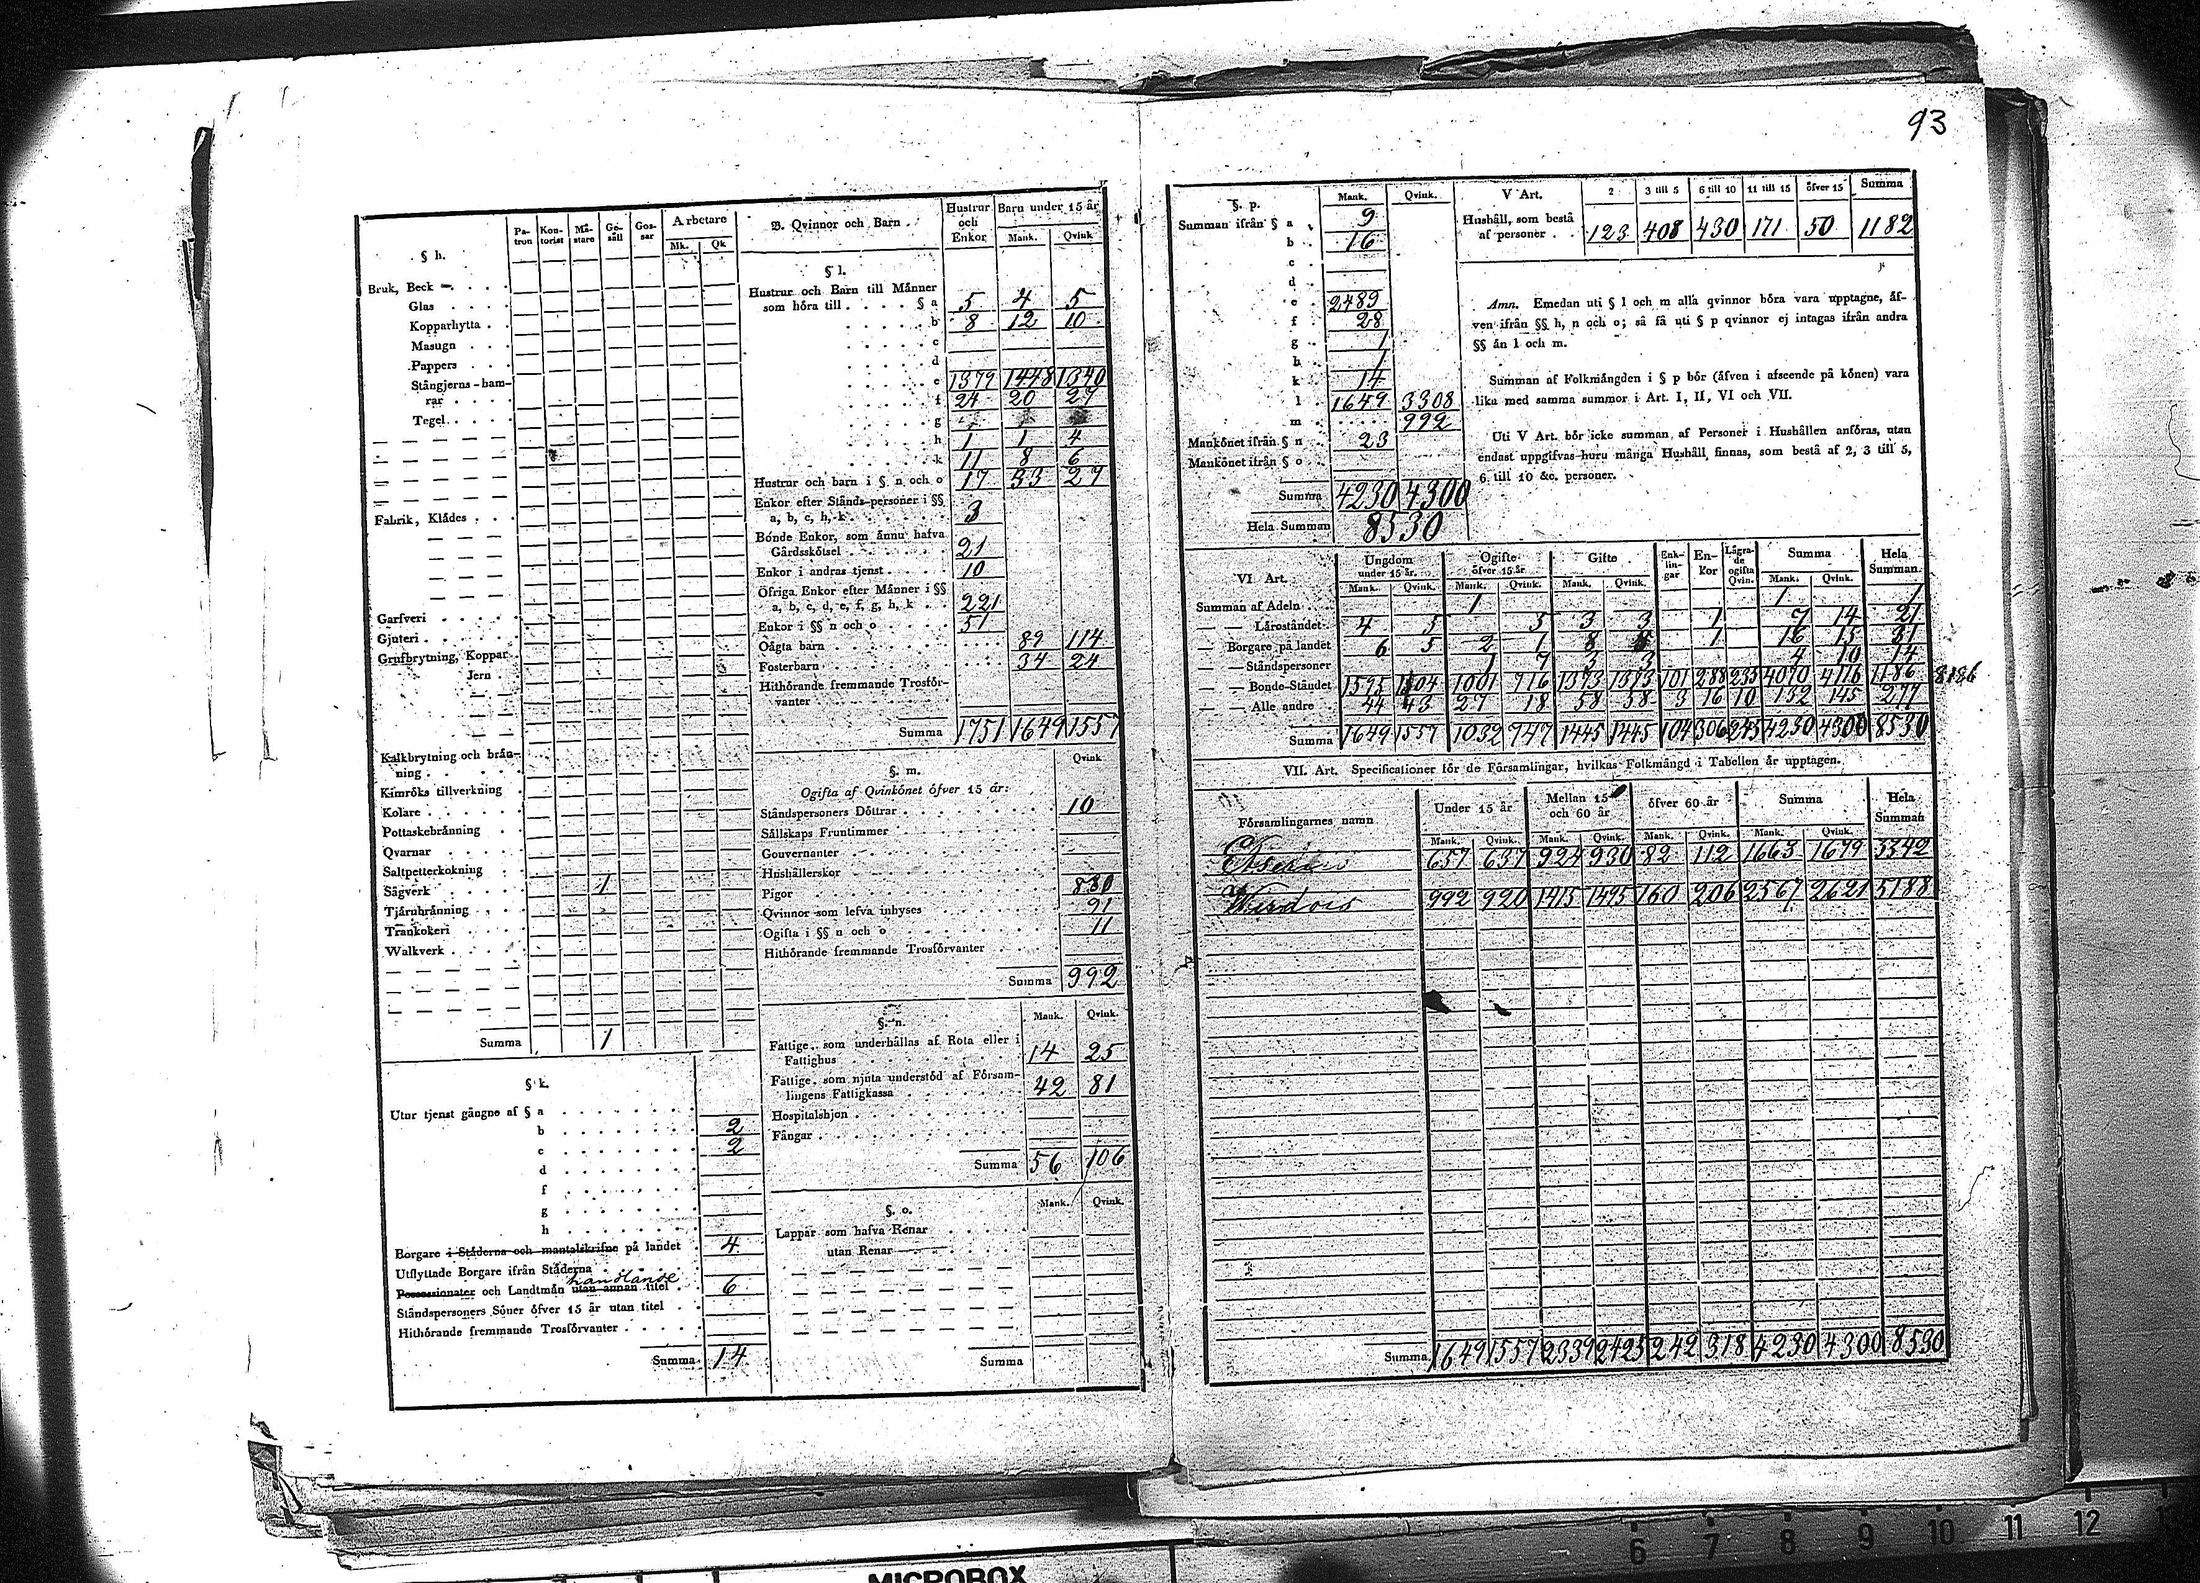 93
§ h.
Pa-tron Kon-torist Mä-stare Ge-säll Gos-sar Arbetare Mk. Qk
Bruk, Beck
Glas
Kopparhytta
Masugn
Pappers
Stångjerns-ham-
rar
Tegel
Fabrik, Klädes
Garfveri
Gjuteri
Grufbrytning, Koppar
Jern
Kalkbrytning och brän-
ning
Kimröks tillverkning
Kolare
Pottaskebränning
Qvarnar
Saltpetterkokning
Sågverk 1
Tjärubränning
Trankokeri
Walkverk
Summa 1
§ k.
Utur tjenst gångne af § a
b 2
c 2
d
f
g
h
Borgare i Städerna och mantalskrifne på landet 4
Utflyttade Borgare ifrån Städerna
handlande
Possessionater och Landtmän utan annan titel 6
Ståndspersoners Söner öfver 15 år utan titel
Hithörande fremmande Trosförvanter
Summa 14
B. Qvinnor och Barn Hustrur och Enkor Barn under 15 år Mank. Qvink
§ l.
Hustrur och Barn till Männer
som höra till § a 5 4 5
b 8 12 10
c
d
e 1379 1448 1340
f 24 20 27
g
h 1 1 4
k 11 8 6
Hustrur och barn i § n och o 17 33 27
Enkor efter Stånds-personer i §§
a, b, c, h, k 3
Bonde Enkor, som ännu hafva
Gårdsskötsel 21
Enkor i andras tjenst 10
Öfriga Enkor efter Männer i §§
a, b, c, d, e, f, g, h, k 221
Enkor i §§ n och o 51
Oägta barn 89 114
Fosterbarn 34 24
Hithörande fremmande Trosför-
vanter
Summa 1751 1649 1557
§. m. Qvink
Ogifta af Qvinkönet öfver 15 år:
Ståndspersoners Döttrar 10
Sällskaps Fruntimmer
Gouvernanter
Hushållerskor
Pigor 880
Qvinnor som lefva inhyses 91
Ogifta i §§ n och o 11
Hithörande fremmande Trosförvanter
Summa 992
§. n. Mank. Qvink.
Fattige, som underhållas af Rota eller i
Fattighus 14 25
Fattige, som njuta understöd af Försam-
lingens Fattigkassa 42 81
Hospitalshjon
Fångar
Summa 56 106
§. o. Mank. Qvink.
Lappar som hafva Renar
utan Renar
Summa
§. p. Mank. Qvink.
Summan ifrån § a 9
b 16
c
d
e 2489
f 28
g 1
h 1
k 14
l 1649 3308
m 992
Mankönet ifrån § n 23
Mankönet ifrån § o
Summa 4230 4300
Hela Summan 8530
V Art. 2 3 till 5 6 till 10 11 till 15 öfver 15 Summa
Hushåll, som bestå
af personer 123 408 430 171 50 1182
Anm. Emedan uti § l och m alla qvinnor böra vara upptagne, äf-
ven ifrån §§ h, n och o; så få uti § p qvinnor ej intagas ifrån andra
§§ än l och m.
Summan af Folkmängden i § p bör (äfven i afseende på könen) vara
lika med samma summor i Art. I, II, VI och VII.
Uti V Art. bör icke summan af Personer i Hushållen anföras, utan
endast uppgifvas huru många Hushåll finnas, som bestå af 2, 3 till 5,
6 till 10 &c. personer.
VI Art. Ungdom under 15 år. Ogifte öfver 15 år Gifte Enk-lin-gar En-kor Lägra-de ogifta Qvin. Summa Hela Summan
Mank. Qvink. Mank. Qvink. Mank. Qvink. Mank. Qvink.
Summan af Adeln 1 1 1
Låroståndet 4 5 5 3 3 1 7 14 21
Borgare på landet 6 5 2 1 8 8 1 16 15 31
Ståndspersoner 1 7 3 3 4 10 14
Bonde-Ståndet 1595 1504 1001 716 1373 1373 101 288 235 4070 4116 1186 8186
Alle andre 44 43 27 18 58 58 3 16 10 132 145 277
Summa 1649 1557 1032 747 1445 1445 104 306 245 4230 4300 8530
VII. Art. Specificationer för de Församlingar, hvilkas Folkmängd i Tabellen är upptagen.
Församlingarnes namn Under 15 år Mellan 15 och 60 år öfver 60 år Summa Hela Summan
Mank. Qvink. Mank. Qvink. Mank. Qvink. Mank. Qvink.
657 637 924 930 82 112 1663 1679 3342
Wirdois 992 920 1415 1495 160 206 2567 2621 5188
Summa 1649 1557 2339 2425 242 318 4230 4300 8530
6 7 8 9 10 11 12 13
MICROBOX